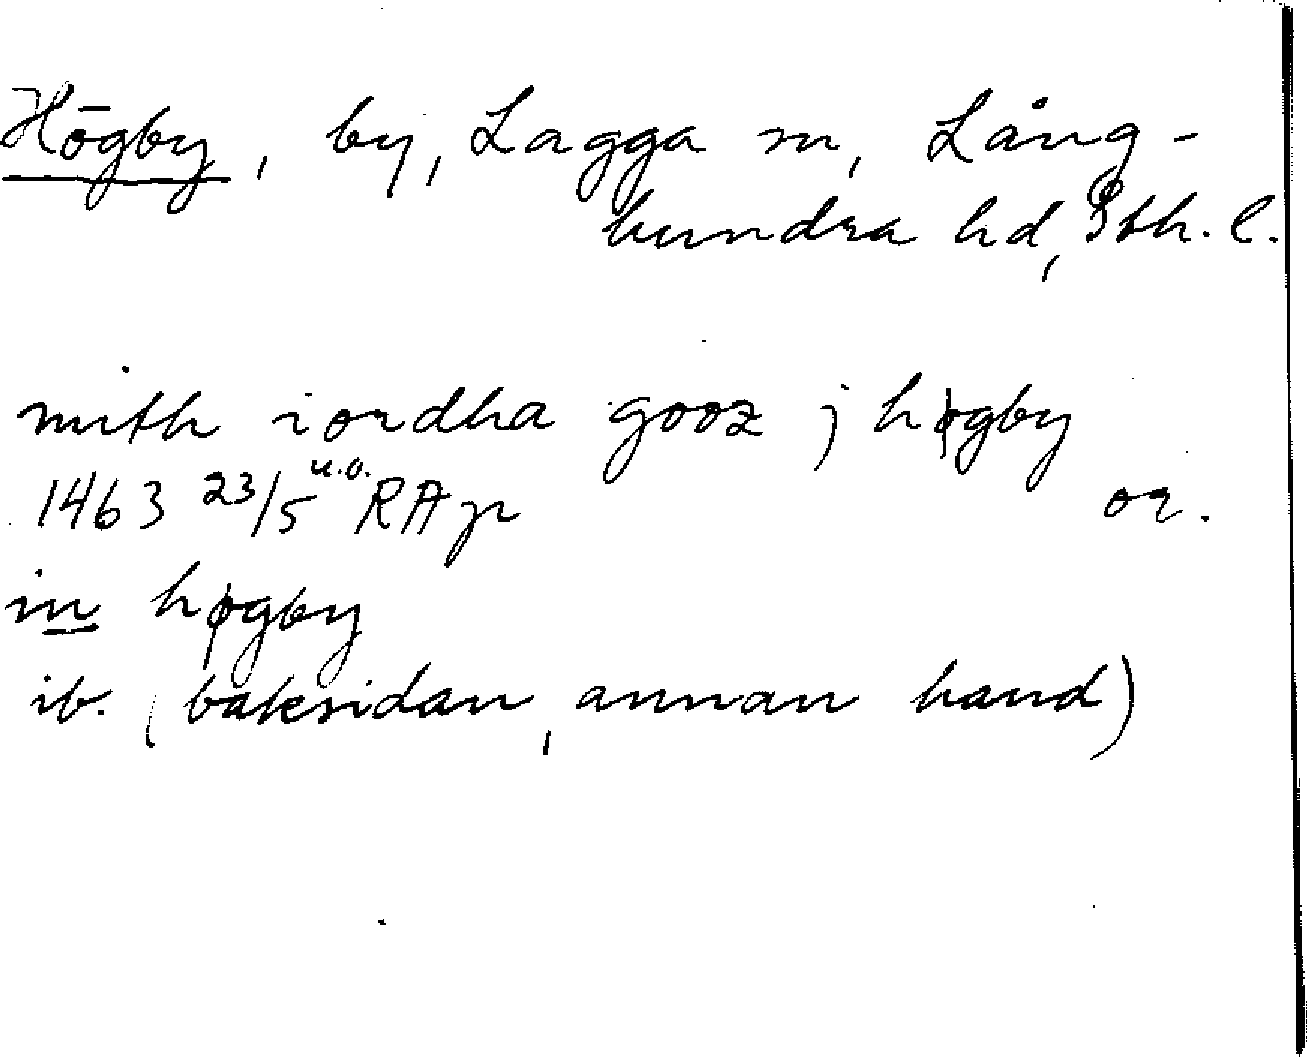 Högby, by, Lagga sn, Lång-
hundra hd, Sth. l.
mith iordha gooz j høgby
1463 23/5 u.o. RAp or.
in høgby
ib. (baksidan, annan hand)